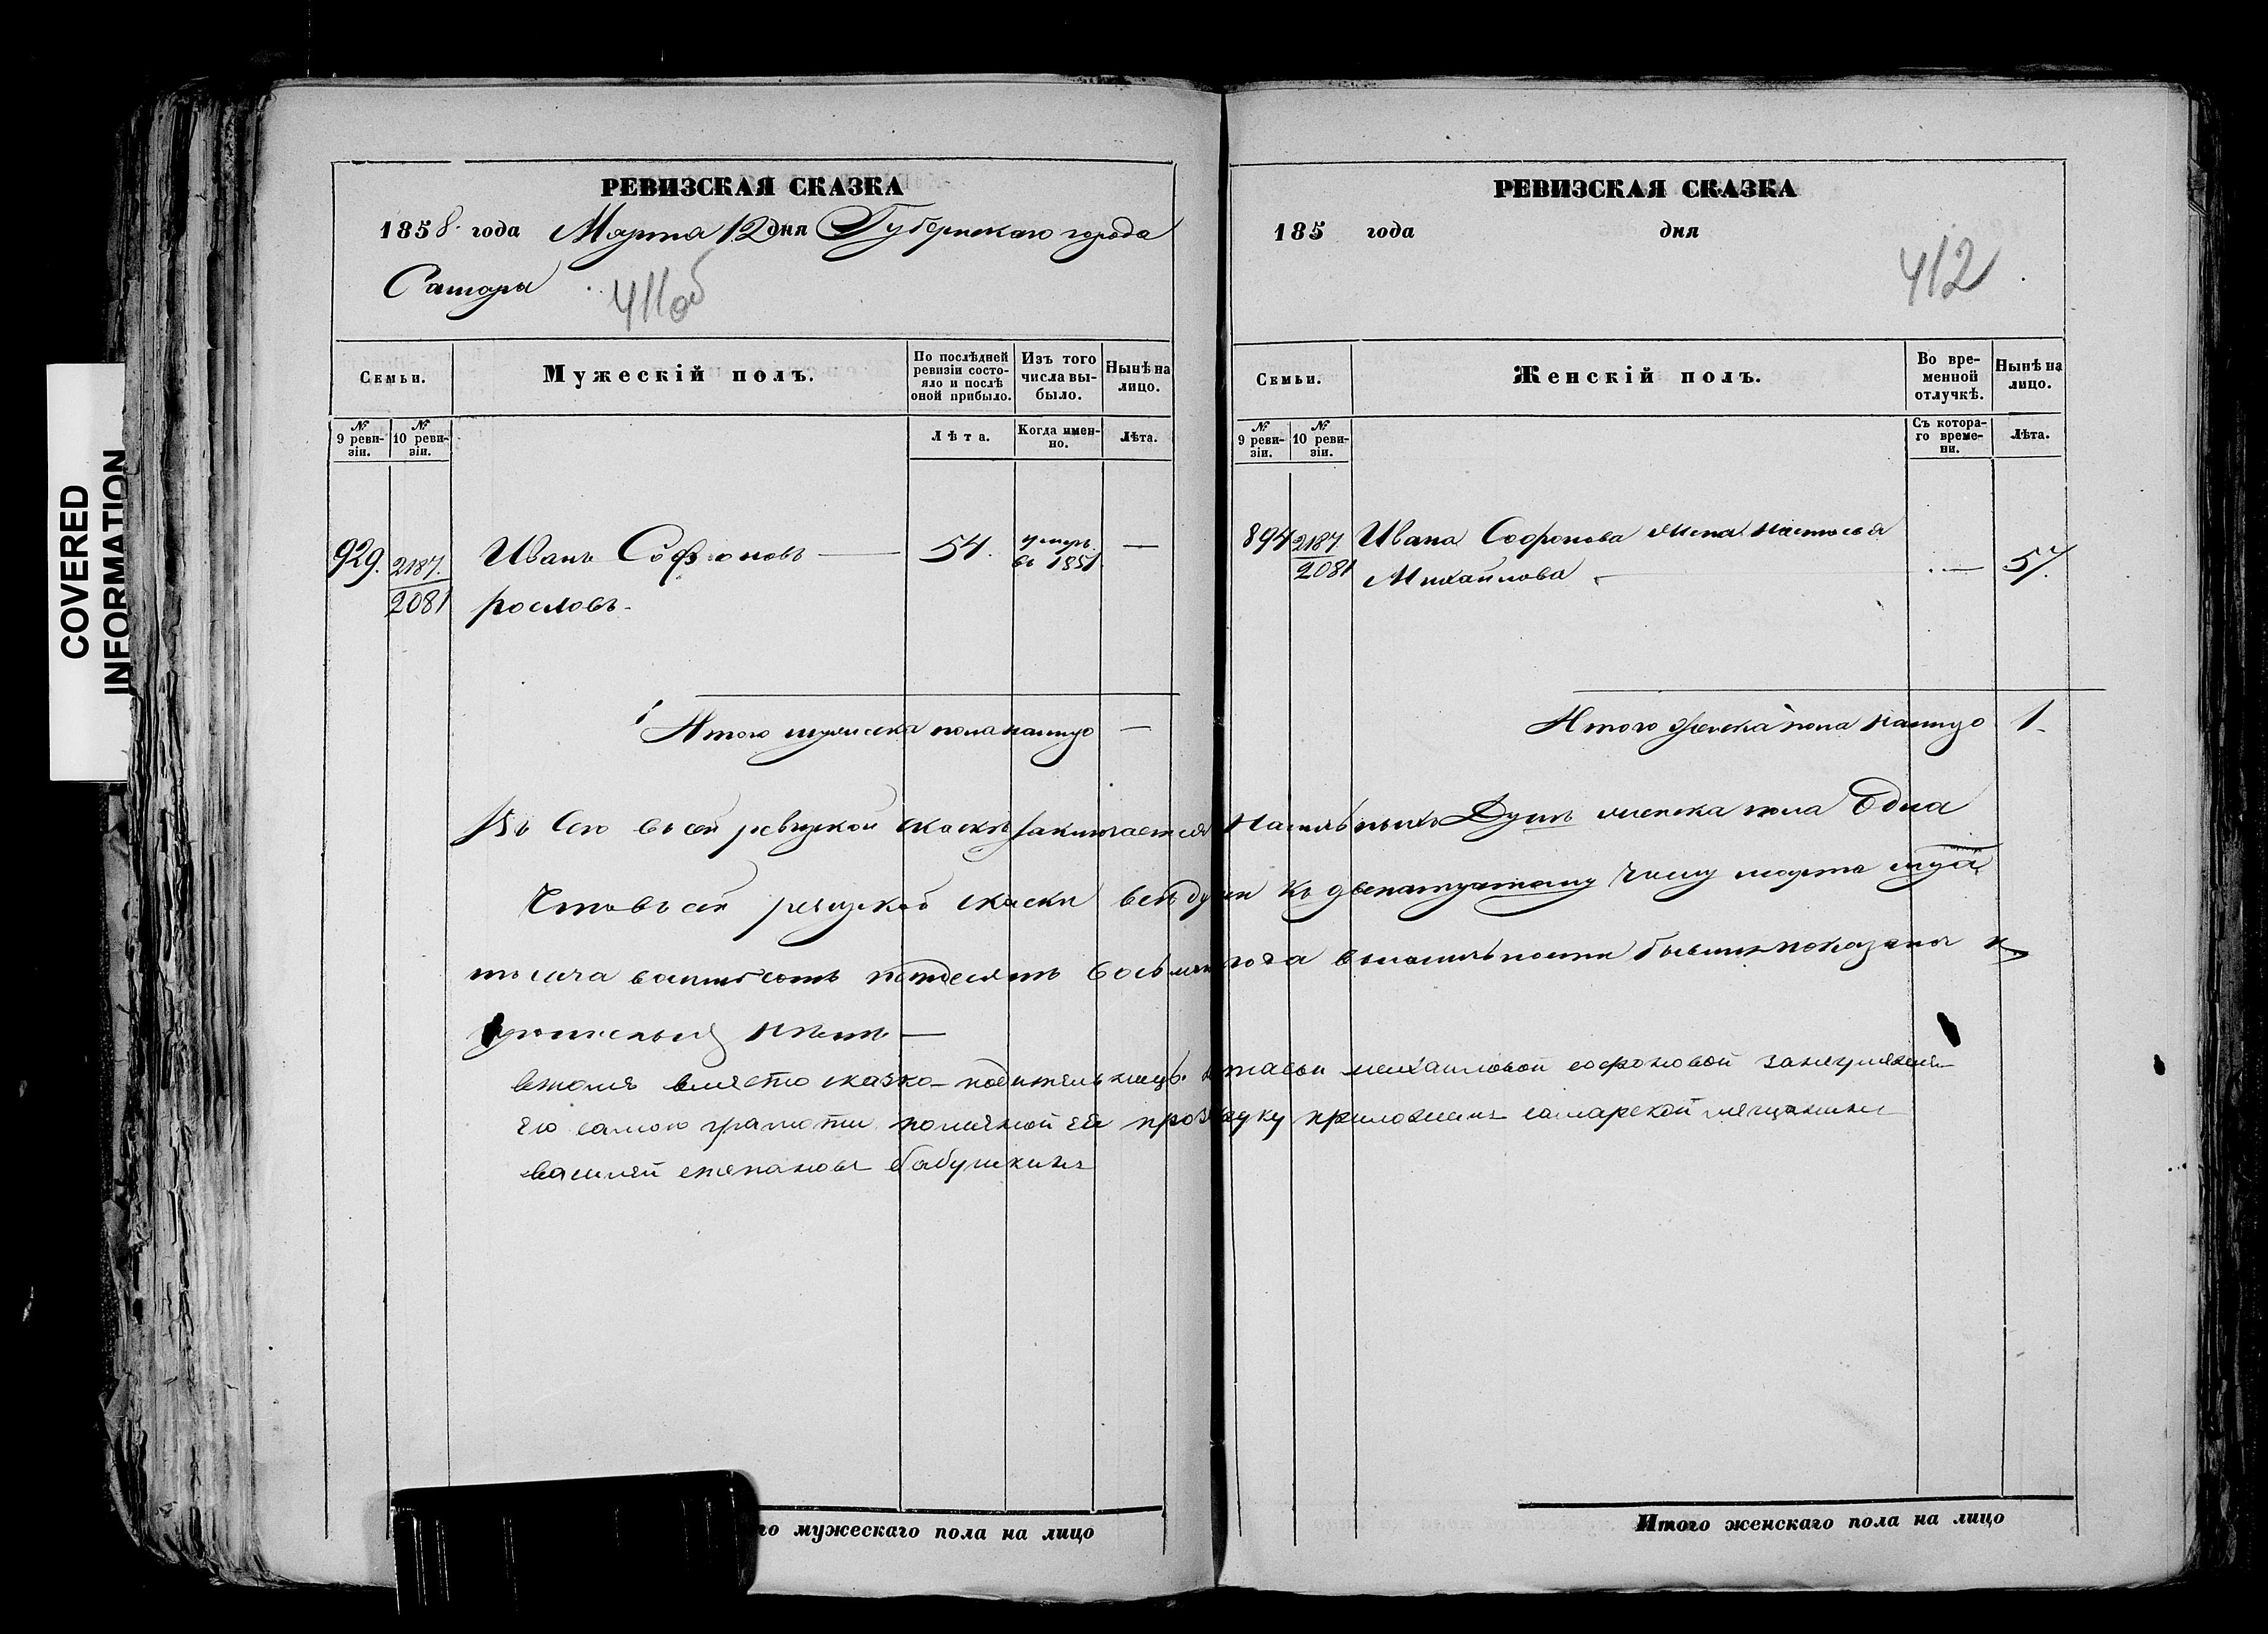 COVERED
INFORMATION
РЕВИЗСКАЯ СКАЗКА
1858. года Марта 12 дня Губернскаго города
Самары
411об
Семьи.
Мужескій полъ.
По послѣдней ревизіи состояло и послѣ оной прибыло.
Изъ того числа выбыло.
Нынѣ на лицо.
№ 9 ревизіи.
№ 10 ревизіи.
Лѣта.
Когда именно.
Лѣта.
929. 2187. Иванъ Софроновъ — 54. умеръ въ 1851 —
2081 рословъ.
Итого мужеска пола налицо —
РЕВИЗСКАЯ СКАЗКА
185 года дня
412
Семьи.
Женскій полъ.
Во временной отлучкѣ.
Нынѣ на лицо.
№ 9 ревизіи.
№ 10 ревизіи.
Съ котораго времени.
Лѣта.
894 2187. Ивана Софронова жена Настасья
2081 Михайлова — 57.
Итого женска пола налицо 1.
въ сей ревизкой скаскѣ заключается Наличныхъ Душъ женска пола Одна
Что въ сей ревизкой скаски всѣ души къ двенатцатому числу марта
тысяча восемьсотъ пятдесятъ восьмаго года в наличности бывшие показаны и
прописныхъ нѣтъ —
втомъ вместо сказко-подательницы настасьи михайловой софроновой занеумениемъ
ею самою грамоти поличной ея прозбу руку приложилъ самарской мещанинъ
василей степановъ бабушкинъ
го мужескаго пола на лицо
Итого женскаго пола на лицо